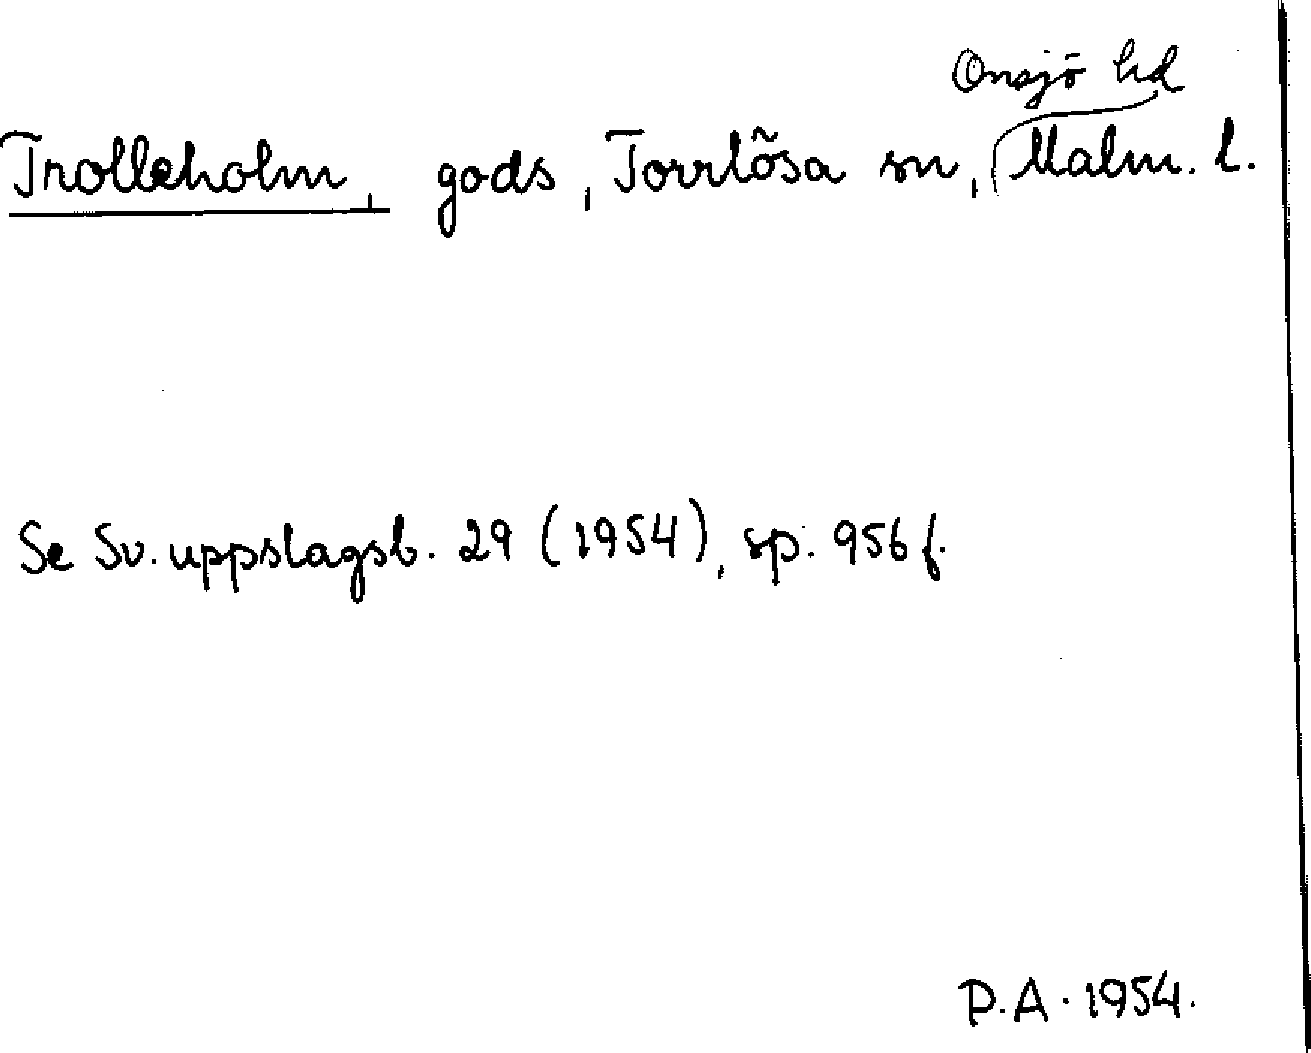 Onsjö hd
Trolleholm, gods, Torrlösa sn, Malm. l.
Se Sv. uppslagsb. 29 (1954), sp. 956 f.
P.A. 1954.